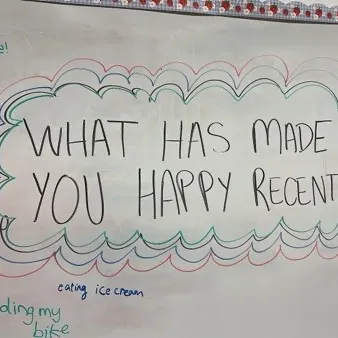 e!
WHAT HAS MADE
YOU HAPPY RECENT
eating ice cream
ding my
bike